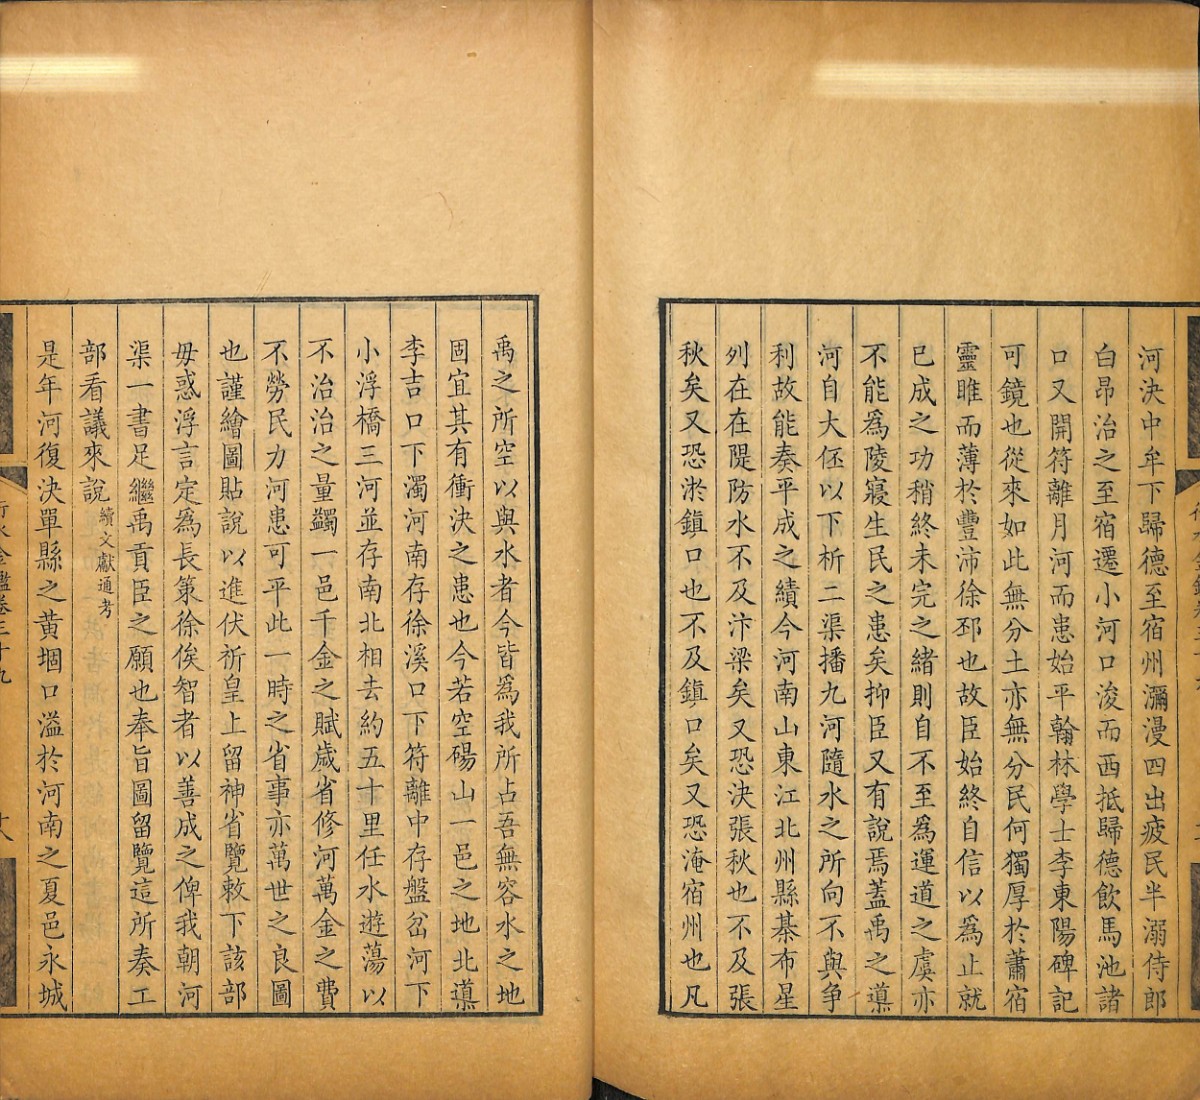 河決中牟下歸德至宿州瀰漫四出疲民半溺侍郎
白昂治之至宿遷小河口浚而西抵歸德飲馬池諸
口又開符離月河而患始平翰林學士李東陽碑記
可鏡也從來如此無分土亦無分民何獨厚於蕭宿
靈睢而薄於豐沛徐邳也故臣始終自信以為止就
已成之功稍終未完之緒則自不至為運道之虞亦
不能為陵寢生民之患矣抑臣又有說焉蓋禹之䆃
河自大伾以下析二渠播九河隨水之所向不與争
利故能奏平成之績今河南山東江北州縣棊布星
列在在隄防水不及汴梁矣又恐決張秋也不及張
秋矣又恐淤鎮口也不及鎮口矣又恐淹宿州也凡
禹之所空以與水者今皆爲我所占吾無容水之地
固宜其有衝決之患也今若空碭山一邑之地北䆃
李吉口下濁河南存徐溪口下符離中存盤岔河下
小浮橋三河並存南北相去約五十里任水遊蕩以
不治治之量蠲一邑千金之賦歲省修河萬金之費
不勞民力河患可平此一時之省事亦萬世之良圖
也謹繪圖貼說以進伏祈皇上留神省覽敕下該部
毋惑浮言定爲長策徐俟智者以善成之俾我朝河
渠一書足繼禹貢臣之願也奉旨圖留覽這所奏工
部看議來說續文獻通考
是年河復決單縣之黄堌口溢於河南之夏邑永城
行水金鑑卷三十九